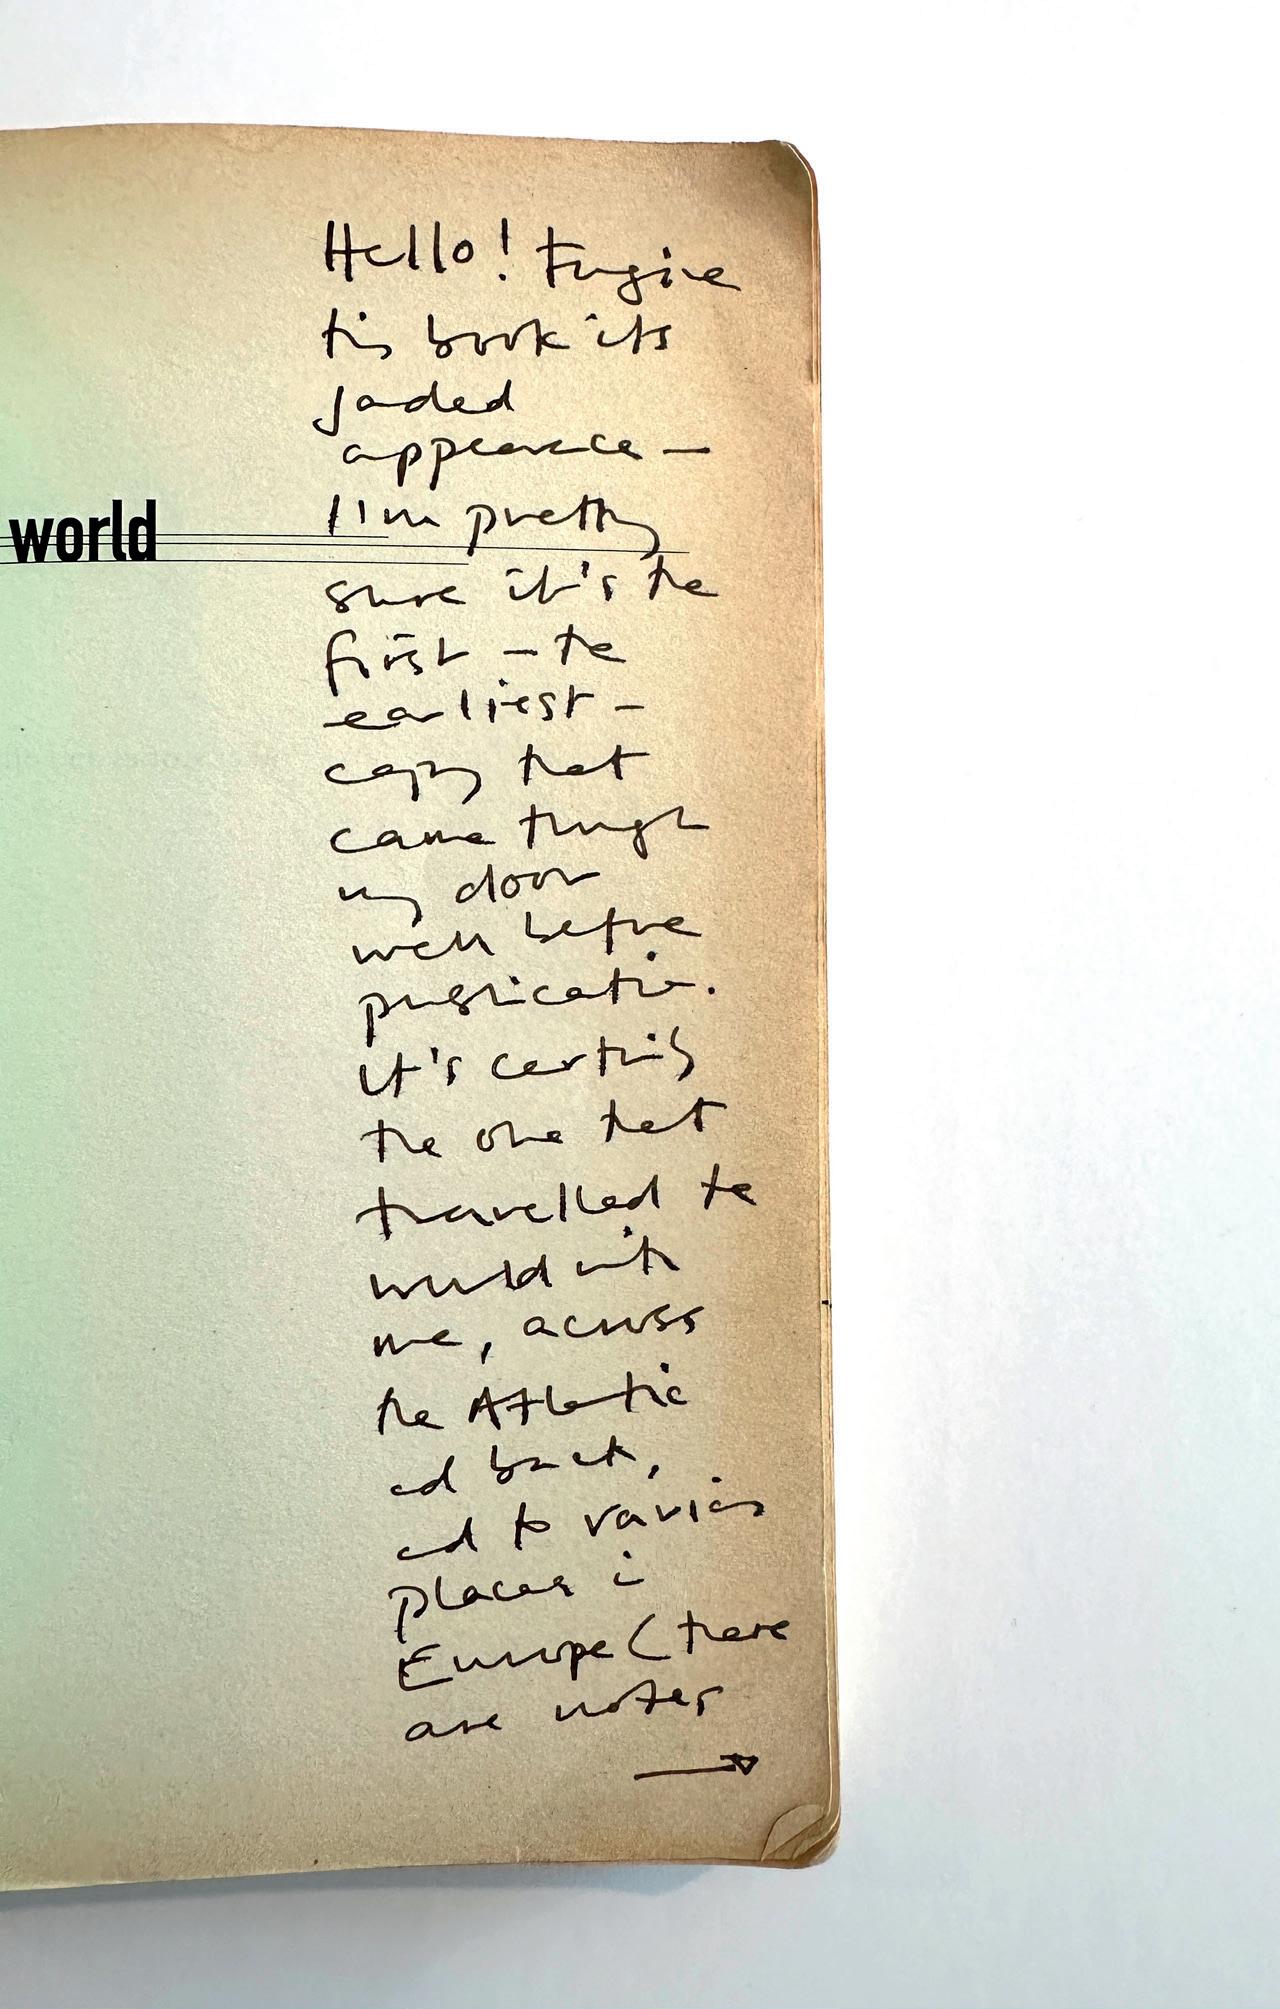 Hello! Forgive
this book its
jaded
appearance –
world
I'm pretty
sure it's the
first – the
earliest –
copy that
came through
my door
well before
publication.
It's certainly
the one that
travelled the
world with
me, across
the Atlantic
and back,
and to various
places in
Europe (there
are notes
→